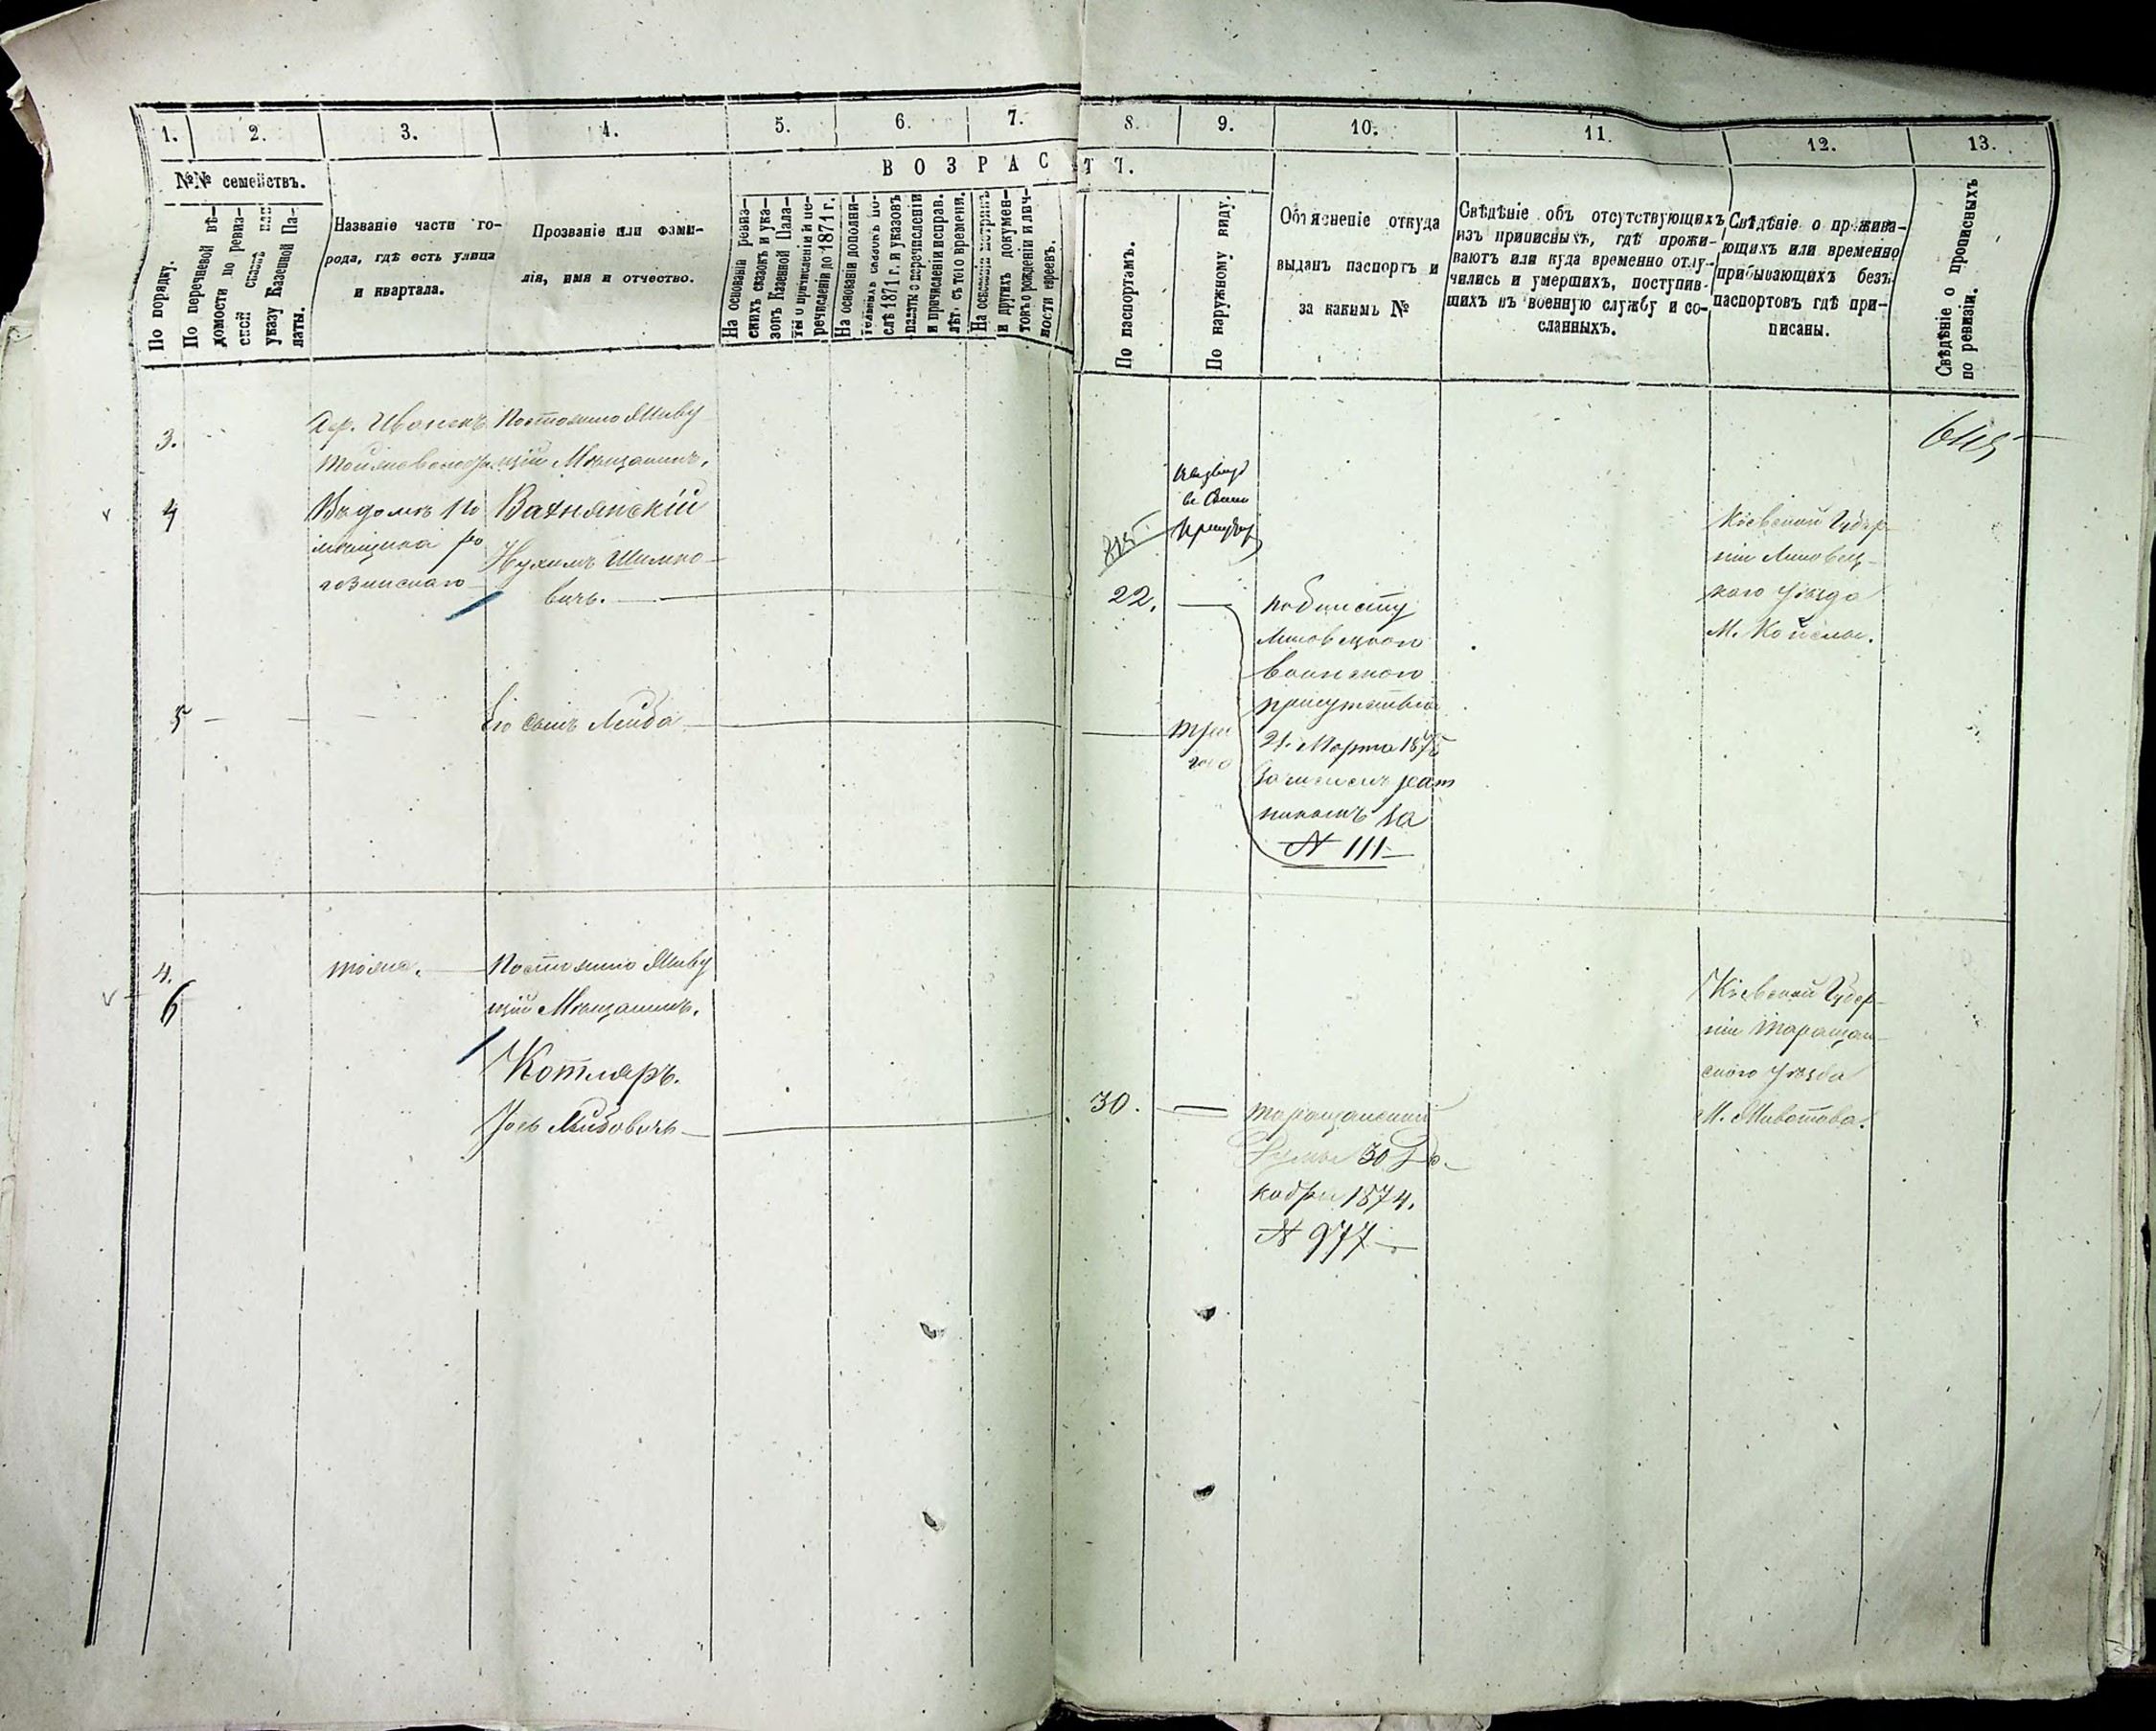 1. 2. 3. 4. 5. 6. 7. 8. 9. 10. 11. 12. 13.
ВОЗРАСТЪ.
№№ семействъ.
По порядку.
По перечневой вѣ-
домости по ревиз-
ской сказкѣ или
указу Казенной Па-
латы.
Названіе части го-
рода, гдѣ есть улица
и квартала.
Прозваніе или фами-
лія, имя и отчество.
На основаніи ревиз-
скихъ сказокъ и ука-
зовъ Казенной Пала-
ты о причисленіи и пе-
речисленіи до 1871 г.
На основаніи дополни-
тельныхъ сказокъ по-
слѣ 1871 г. и указовъ
палаты о перечисленіи
и причисленіи исправ.
лѣт. съ того времени.
На основаніи метрикъ
и другихъ докумен-
товъ о рожденіи и лич-
ности евреевъ.
По паспортамъ.
По наружному виду.
Объясненіе откуда
выданъ паспортъ и
за какимъ №
Свѣдѣніе объ отсутствующихъ
изъ приписныхъ, гдѣ прожи-
ваютъ или куда временно отлу-
чились и умершихъ, поступив-
шихъ въ военную службу и со-
сланныхъ.
Свѣдѣніе о прожива-
ющихъ или временно
прибывающихъ безъ
паспортовъ гдѣ при-
писаны.
Свѣдѣніе о прописныхъ
по ревизіи.
3.
Дер. Иванекъ
Постоянно Живу
щій Мѣщанинъ.
4
Вѣдомъ По
мѣщика
Вахнянскій
Нухимъ Шимко-
вичъ.
22.
Липовецкаго
воинскаго
присутствія
21 Марта 1875
№ 111
Кіевской Губер-
ніи Липовец-
каго уѣзда
М.
5
Его сынъ Лейба
три
года
4.
6
тоже.
Постоянно Живу
щій Мѣщанинъ.
Котляръ.
Іось Лейбовичъ
30.
Таращанской
Думы 30 Де-
кабря 1874.
№ 977
Кіевской Губер-
ніи Таращан-
скаго уѣзда
М. Животова.